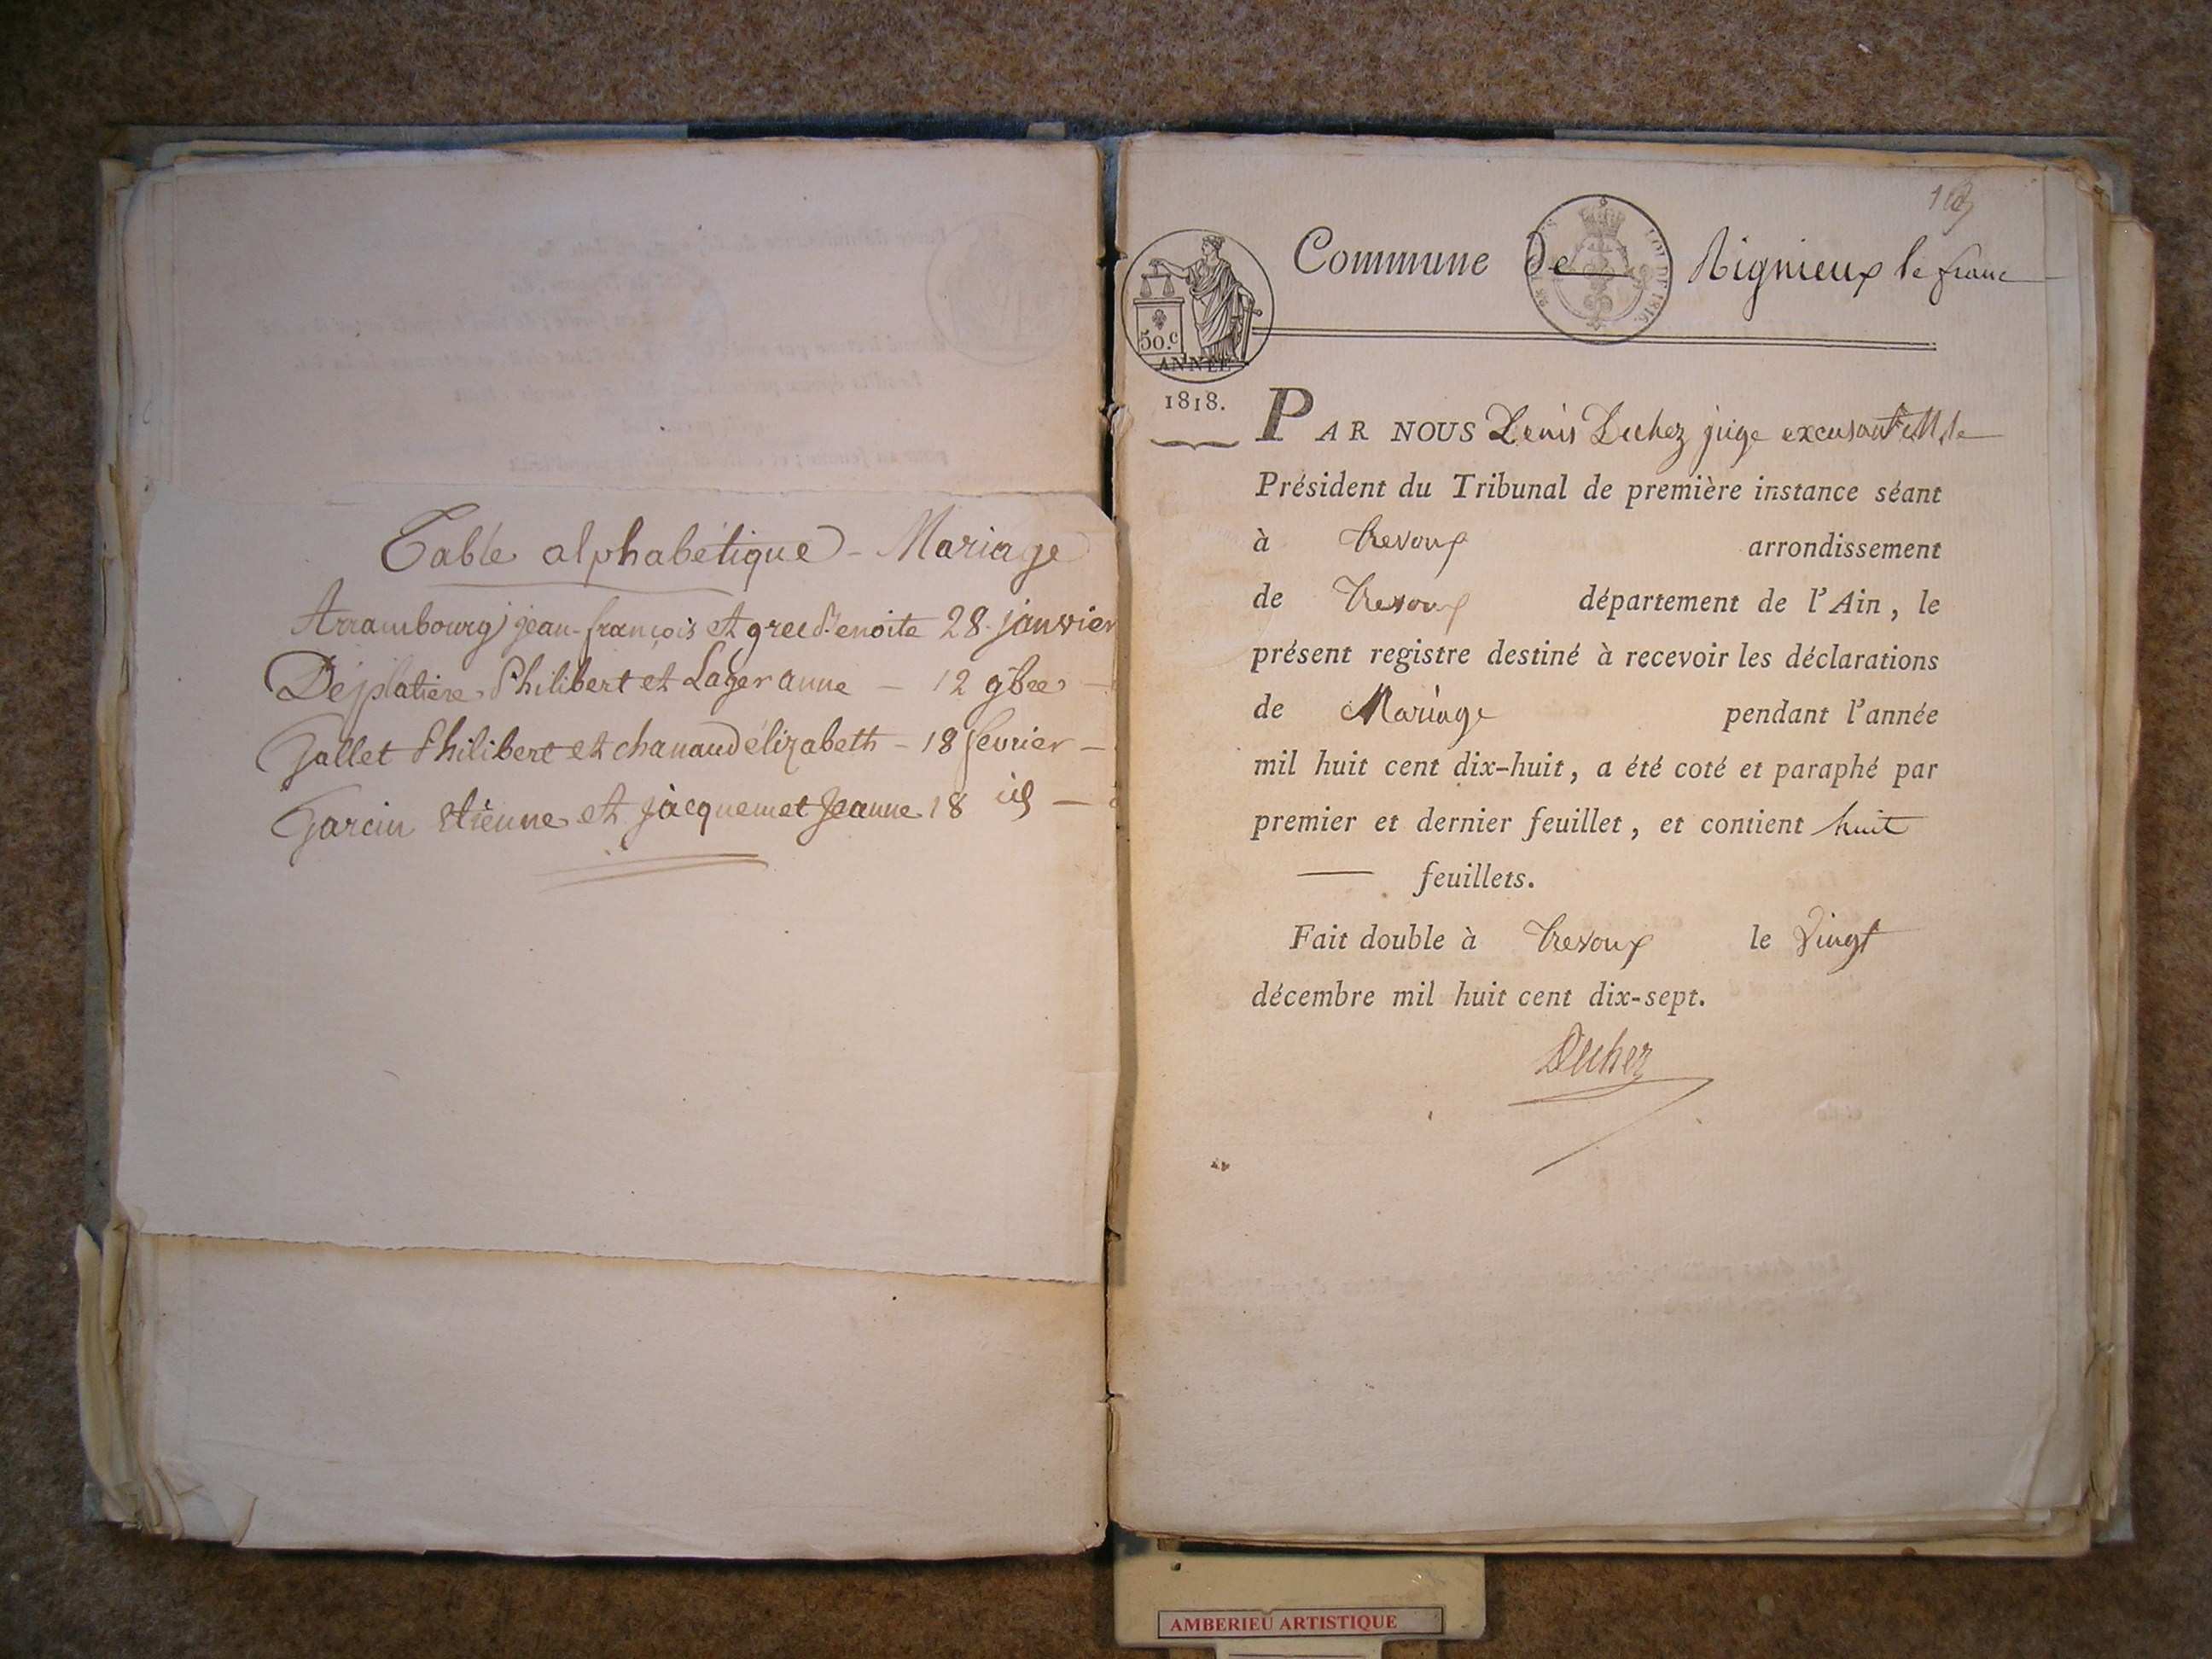 Table alphabétique - Mariage
Arrambourg jean-françois et gree Benoite 28 janvier
Déplatiere Philibert et Lager anne - 12 9bre -
Gallet Philibert et chanaud élizabeth - 18 fevrier -
Garcin etienne et jàcquemet Jeanne 18 id -
Commune De Rignieux le franc
50.c
ANNÉE
1818.
PAR NOUS Denis Duhez juge excusant M. le
Président du Tribunal de première instance séant
à Trevoux arrondissement
de Trevoux département de l'Ain, le
présent registre destiné à recevoir les déclarations
de Mariage pendant l'année
mil huit cent dix-huit, a été coté et paraphé par
premier et dernier feuillet, et contient huit
feuillets.
Fait double à Trevoux le Vingt
décembre mil huit cent dix-sept.
Duhez
AMBERIEU ARTISTIQUE